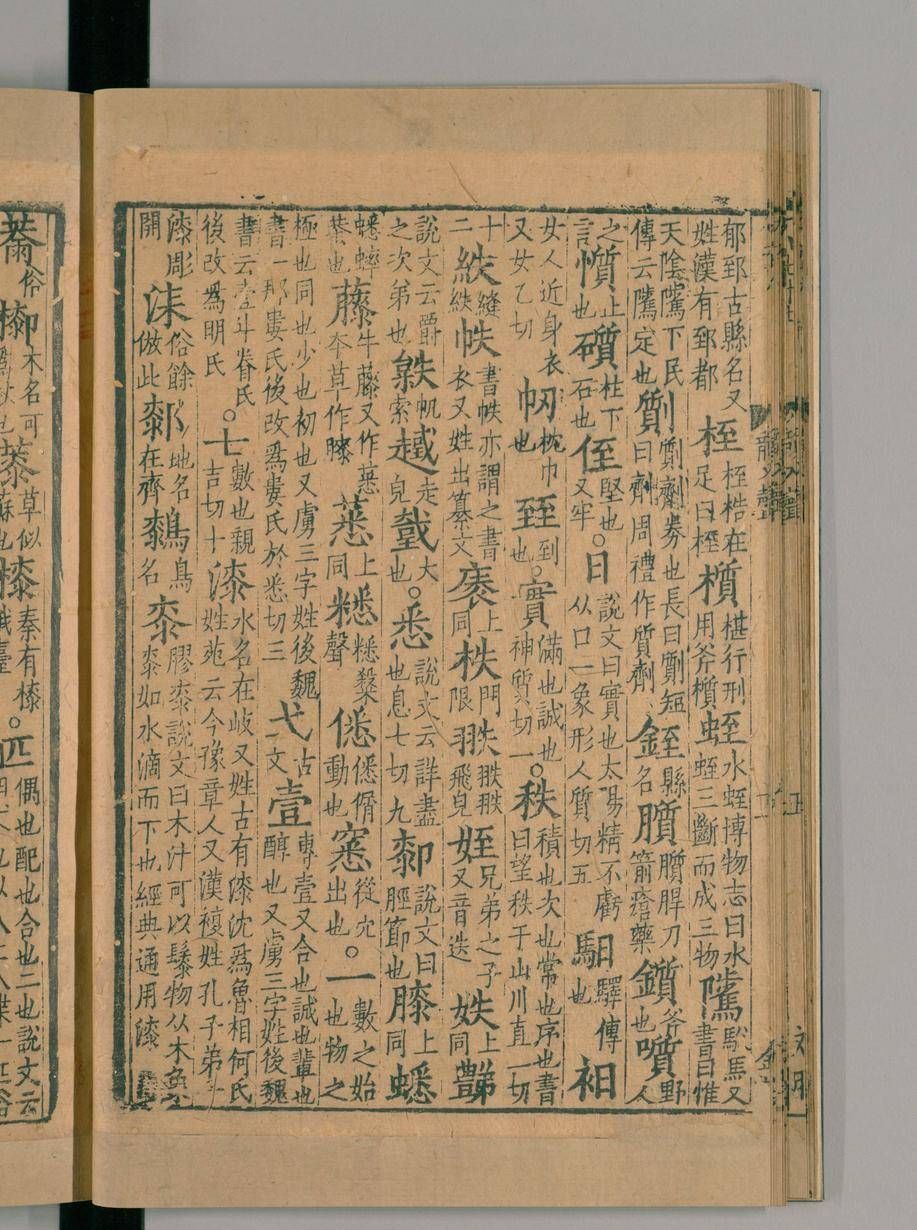 郁郅古縣名又姓漢有郅都桎桎梏在足曰桎櫍椹行刑用斧櫍蛭水蛭博物志曰水蛭三斷而成三物騭駮馬又書曰惟
天陰騭下民傳云騭定也劕劕劑券也長曰劕短曰劑周禮作質劑銍縣名刀箭瘡藥鑕斧也野人
之言懫止也礩柱下石也侄堅也又牢○日說文曰實也太昜精不虧从口一象形人質切五馹驛傳也衵
女人近身衣又女乙切枕巾也臸到也○實滿也誠也神質切一○秩積也次也常也序也書曰望秩于山川直一切
十二紩縫紩帙書帙亦謂之書衣又姓出纂文袠上同柣門限翐翐翐飛皃姪兄弟之子又音迭妷上同豑
說文云爵之次第也帆索走皃大也○悉說文云詳盡也息七切九厀說文曰脛節也膝上同蟋
蟋蟀蛬也牛又作本草作膝上同聲僁僁㑛動也窸從穴出也○一數之始也物之
極也同也少也初也又虜三字姓後魏書一那婁氏後改爲婁氏於悉切三弌古文壹專壹又合也誠也輩也醇也又虜三字姓後魏
書云壹斗眷氏後改爲明氏○七數也親吉切十漆水名在岐又姓古有漆沈爲魯相何氏姓苑云今豫章人又漢複姓孔子弟子
漆彫開柒俗餘倣此䣛地名在齊鳥名桼膠桼說文曰木汁可以䰍物从木象桼如水滴而下也經典通用漆
俗木名可草似秦有○匹偶也配也合也二也說文云